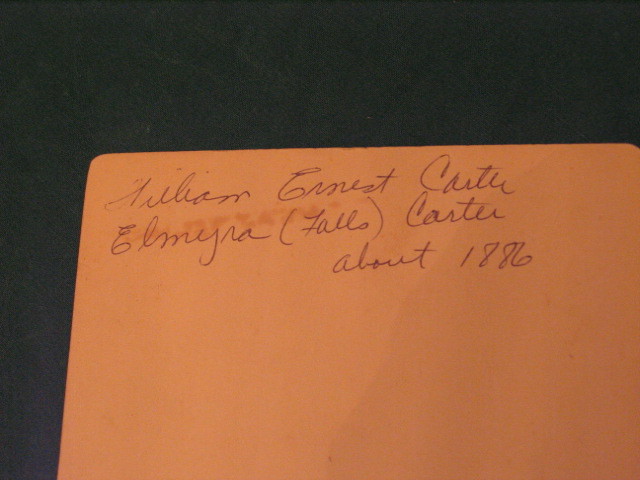 William Ernest Carter
Elmyra (Falls) Carter
about 1886